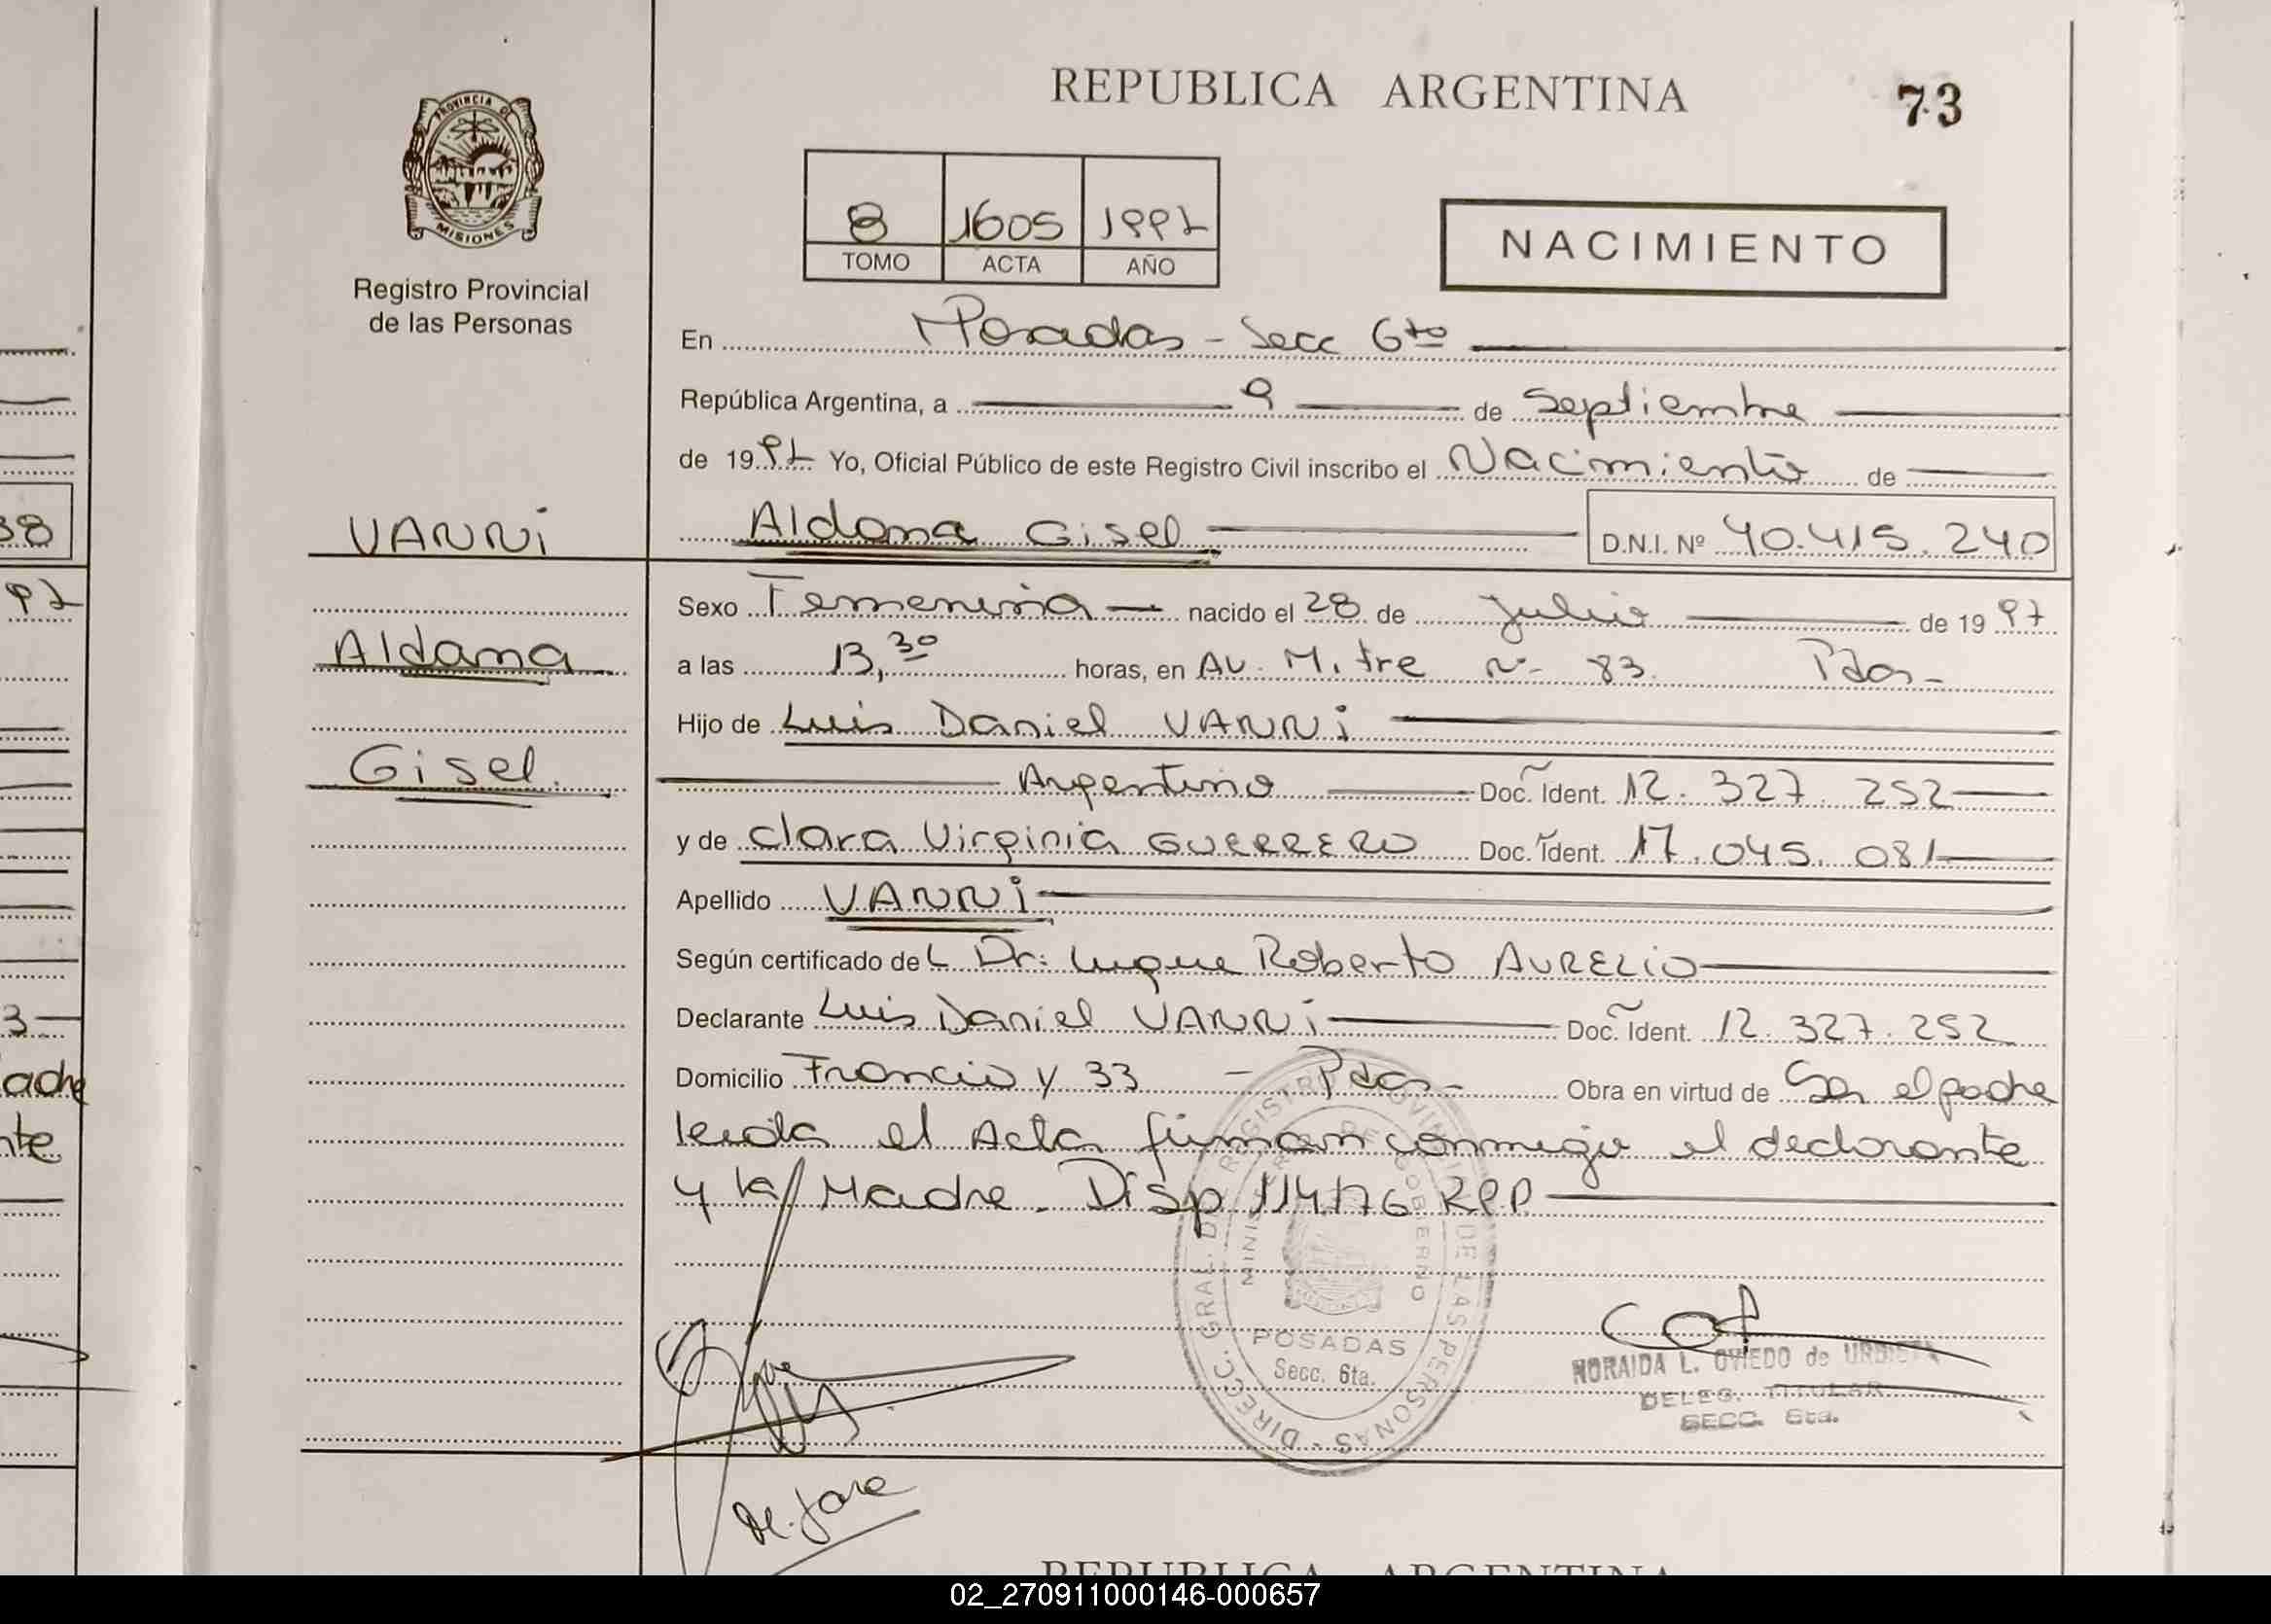 REPUBLICA ARGENTINA
73
PROVINCIA DE
MISIONES
Registro Provincial
de las Personas
8 1605 1997
TOMO ACTA AÑO
NACIMIENTO
En Posadas - Secc 6ta
República Argentina, a 9 de Septiembre
de 1997 Yo, Oficial Público de este Registro Civil inscribo el Nacimiento de
VANNi
Aldana Gisel D.N.I. Nº 40.415.240
Sexo Femenina nacido el 28 de julio de 1997
Aldana
a las 13,30 horas, en Av. Mitre Nº 83. Pdas-
Hijo de Luis Daniel VANNi
Gisel.
Argentino Doc. Ident. 12.327.252
y de Clara Virginia GUERRERO Doc. Ident. 17.045.081
Apellido VANNi
Según certificado del Dr: Luque Roberto AURELIO
Declarante Luis Daniel VANNi Doc. Ident. 12.327.252
Domicilio Francia y 33 - Pdas- Obra en virtud de Ser el padre
leida el Acta firman conmigo el declarante
y la Madre. Disp 114/76 RPP
DIRECC. GRAL. DEL REGISTRO PROVINCIAL DE LAS PERSONAS
MINISTERIO DE GOBIERNO
POSADAS
Secc. 6ta.
NORAIDA L. OVIEDO de URBIETA
DELEG. TITULAR
SECC. 6ta.
38
97
3-
adre
nte
REPUBLICA ARGENTINA
02_270911000146-000657